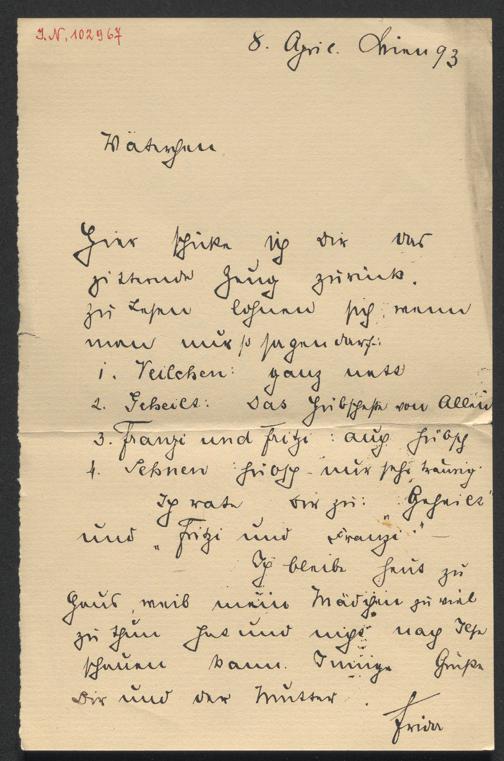 J.N. 102967
8. April. Wien 93
Väterchen
Hier schicke ich Dir das
zitternde Zeug zurück.
zu lesen lohnen sich, wenn
man nur so sagen darf:
1. Veilchen: ganz nett
2. Geheilt: Das Hübscheste von Allen
3. Franzi und Fritzi: auch hübsch
4. Sehnen hübsch - nur sehr traurig.
Ich rate Dir zu: „Geheilt"
und „Fritzi und Franzi." —
Ich bleibe heut zu
Haus, weil mein Mädchen zu viel
zu thun hat und nicht nach Ilse
schauen kann. Innige Grüße
Dir und der Mutter.
Frida